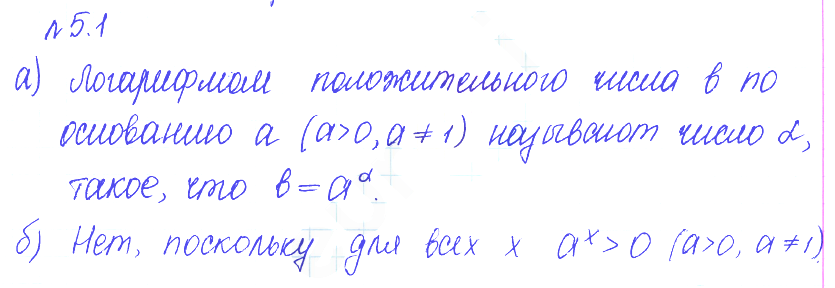 №5.1
а) Логарифмом положительного числа в по
основанию а (а>0, а≠1) называют число α,
такое, что в=a^α.
б) Нет, поскольку для всех х a^x>0 (а>0, а≠1)